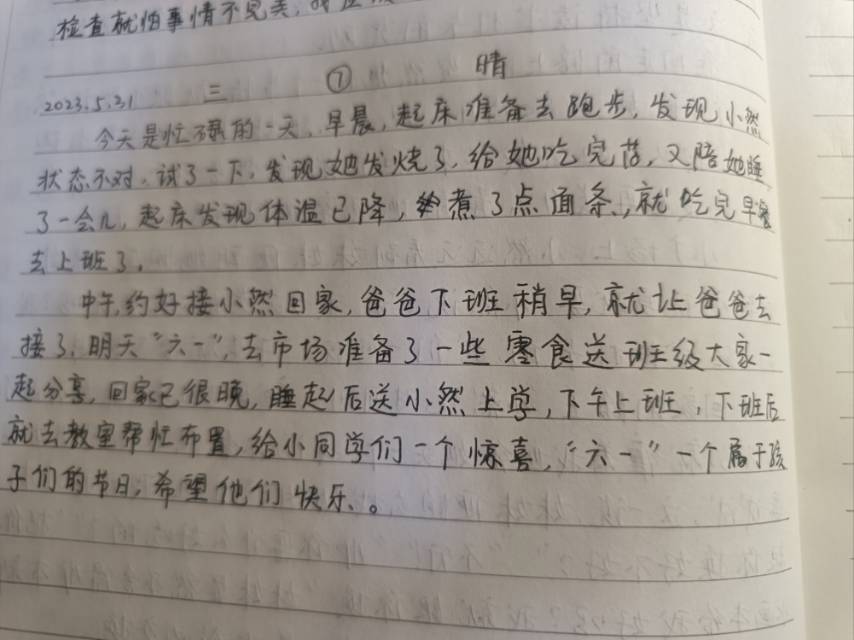 检查就怕事情不完美，
2023.5.31 三 ① 晴
今天是忙碌的一天，早晨，起床准备去跑步，发现小然
状态不对，试了一下，发现她发烧了，给她吃完药，又陪她睡
了一会儿，起床发现体温已降，煮了点面条，就吃完早餐
去上班了。
中午，约好接小然回家，爸爸下班稍早，就让爸爸去
接了，明天“六一”，去市场准备了一些零食送班级大家一
起分享，回家已很晚，睡起后送小然上学，下午上班，下班后
就去教室帮忙布置，给小同学们一个惊喜，“六一”一个属于孩
子们的节日，希望他们快乐。